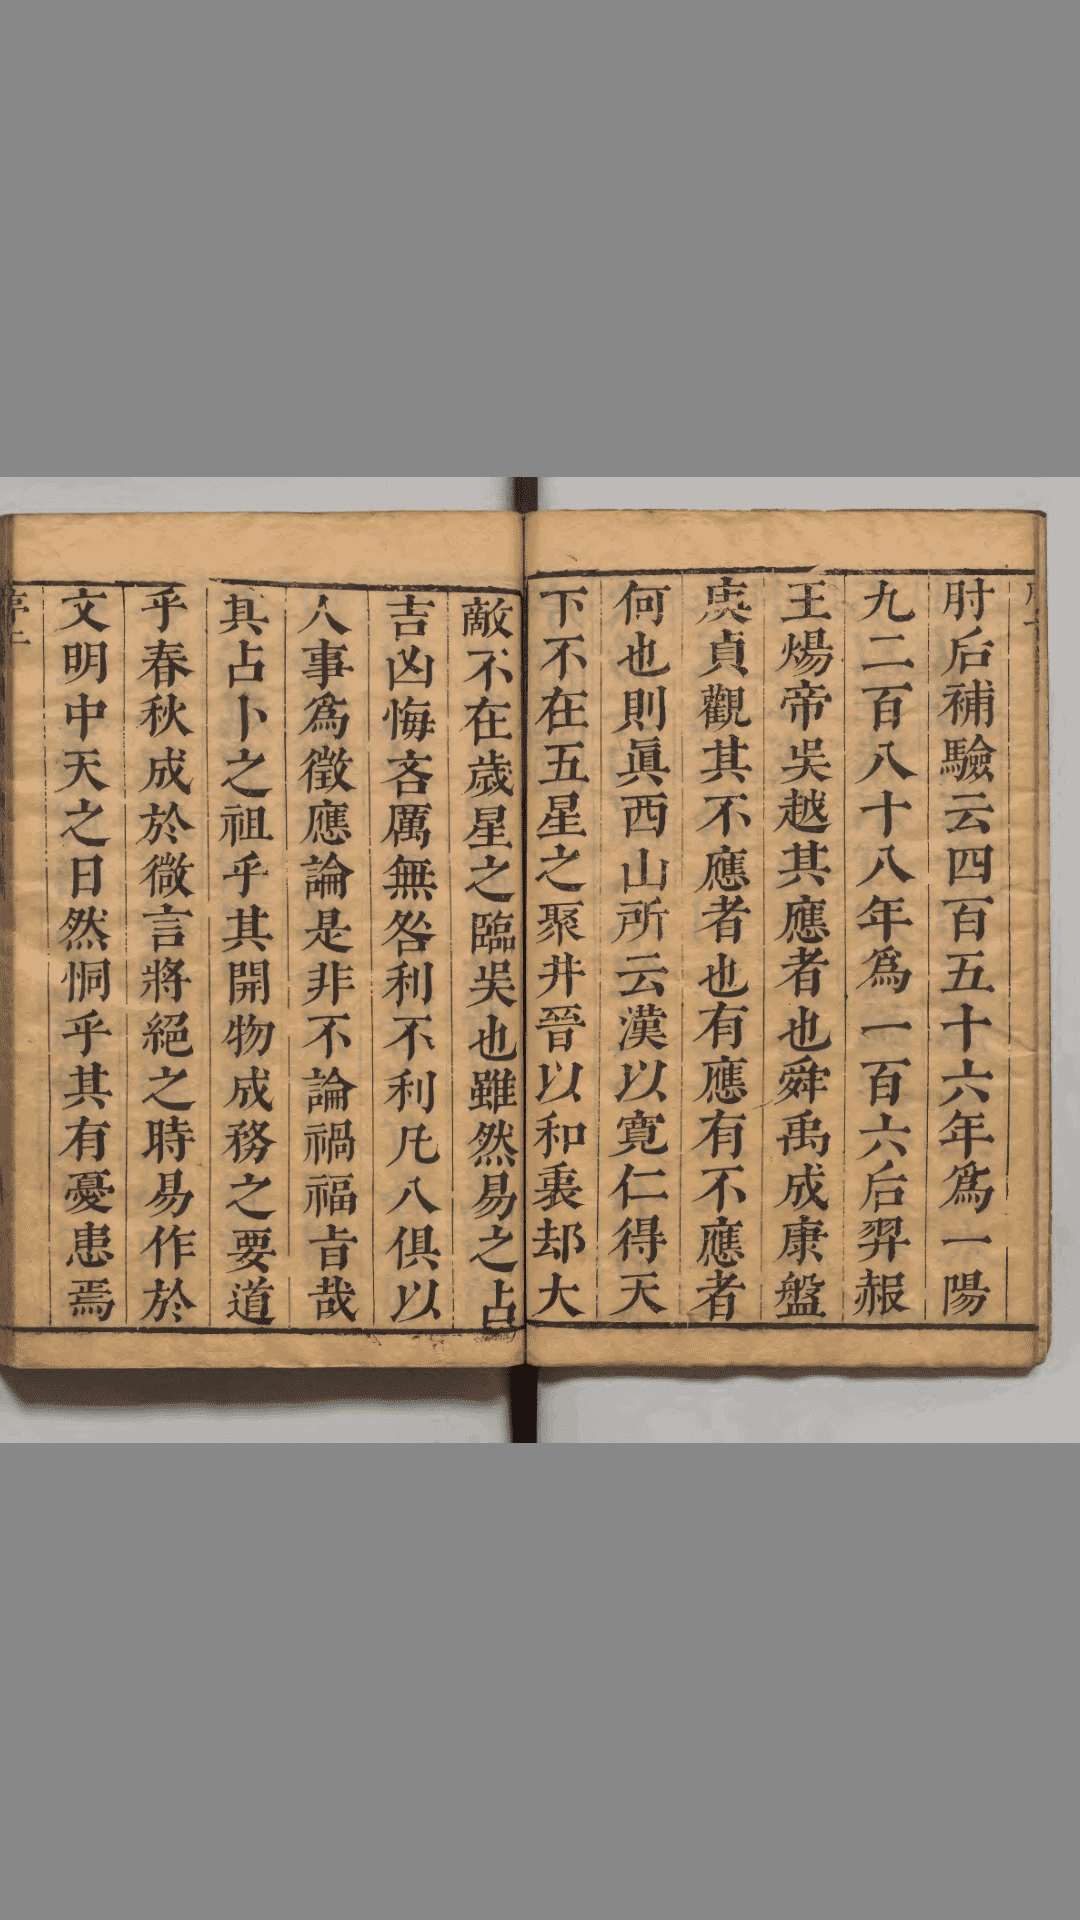 肘后補驗云四百五十六年爲一陽
九二百八十八年爲一百六后羿赧
王煬帝吳越其應者也舜禹成康盤
庚貞觀其不應者也有應有不應者
何也則眞西山所云漢以寬仁得天
下不在五星之聚井晉以和衷却大
敵不在歲星之臨吳也雖然易之占
吉凶悔吝厲無咎利不利凡八俱以
人事爲徵應論是非不論禍福旨哉
其占卜之祖乎其開物成務之要道
乎春秋成於微言將絕之時易作於
文明中天之日然恫乎其有憂患焉